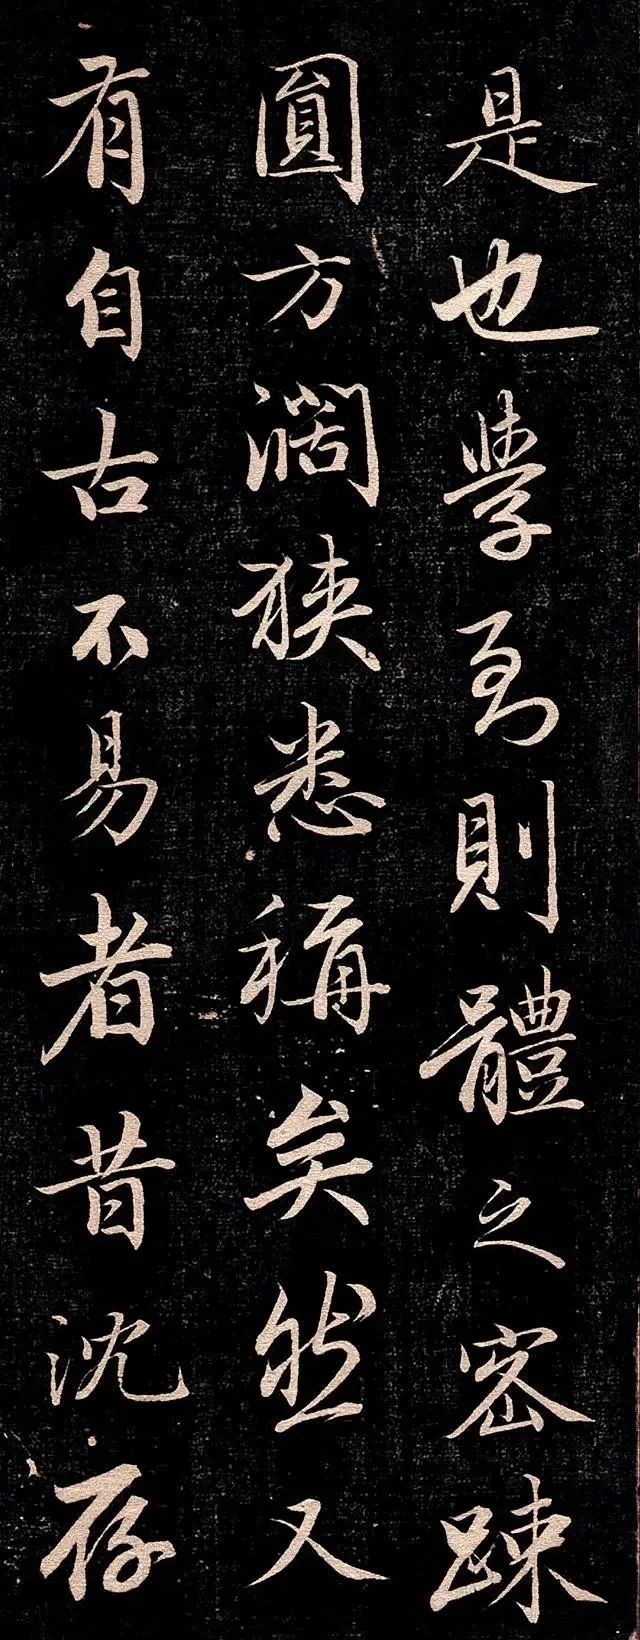 是也學到則體之密踈
圓方濶狹悉稱矣然又
有自古不易者昔沈存